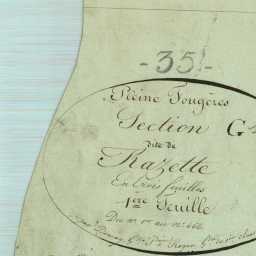 - 35 -
Pleine Fougères
Section G
dite de
Razette
En trois feuilles
1ère Feuille
Du n.° 1er au n.° 466